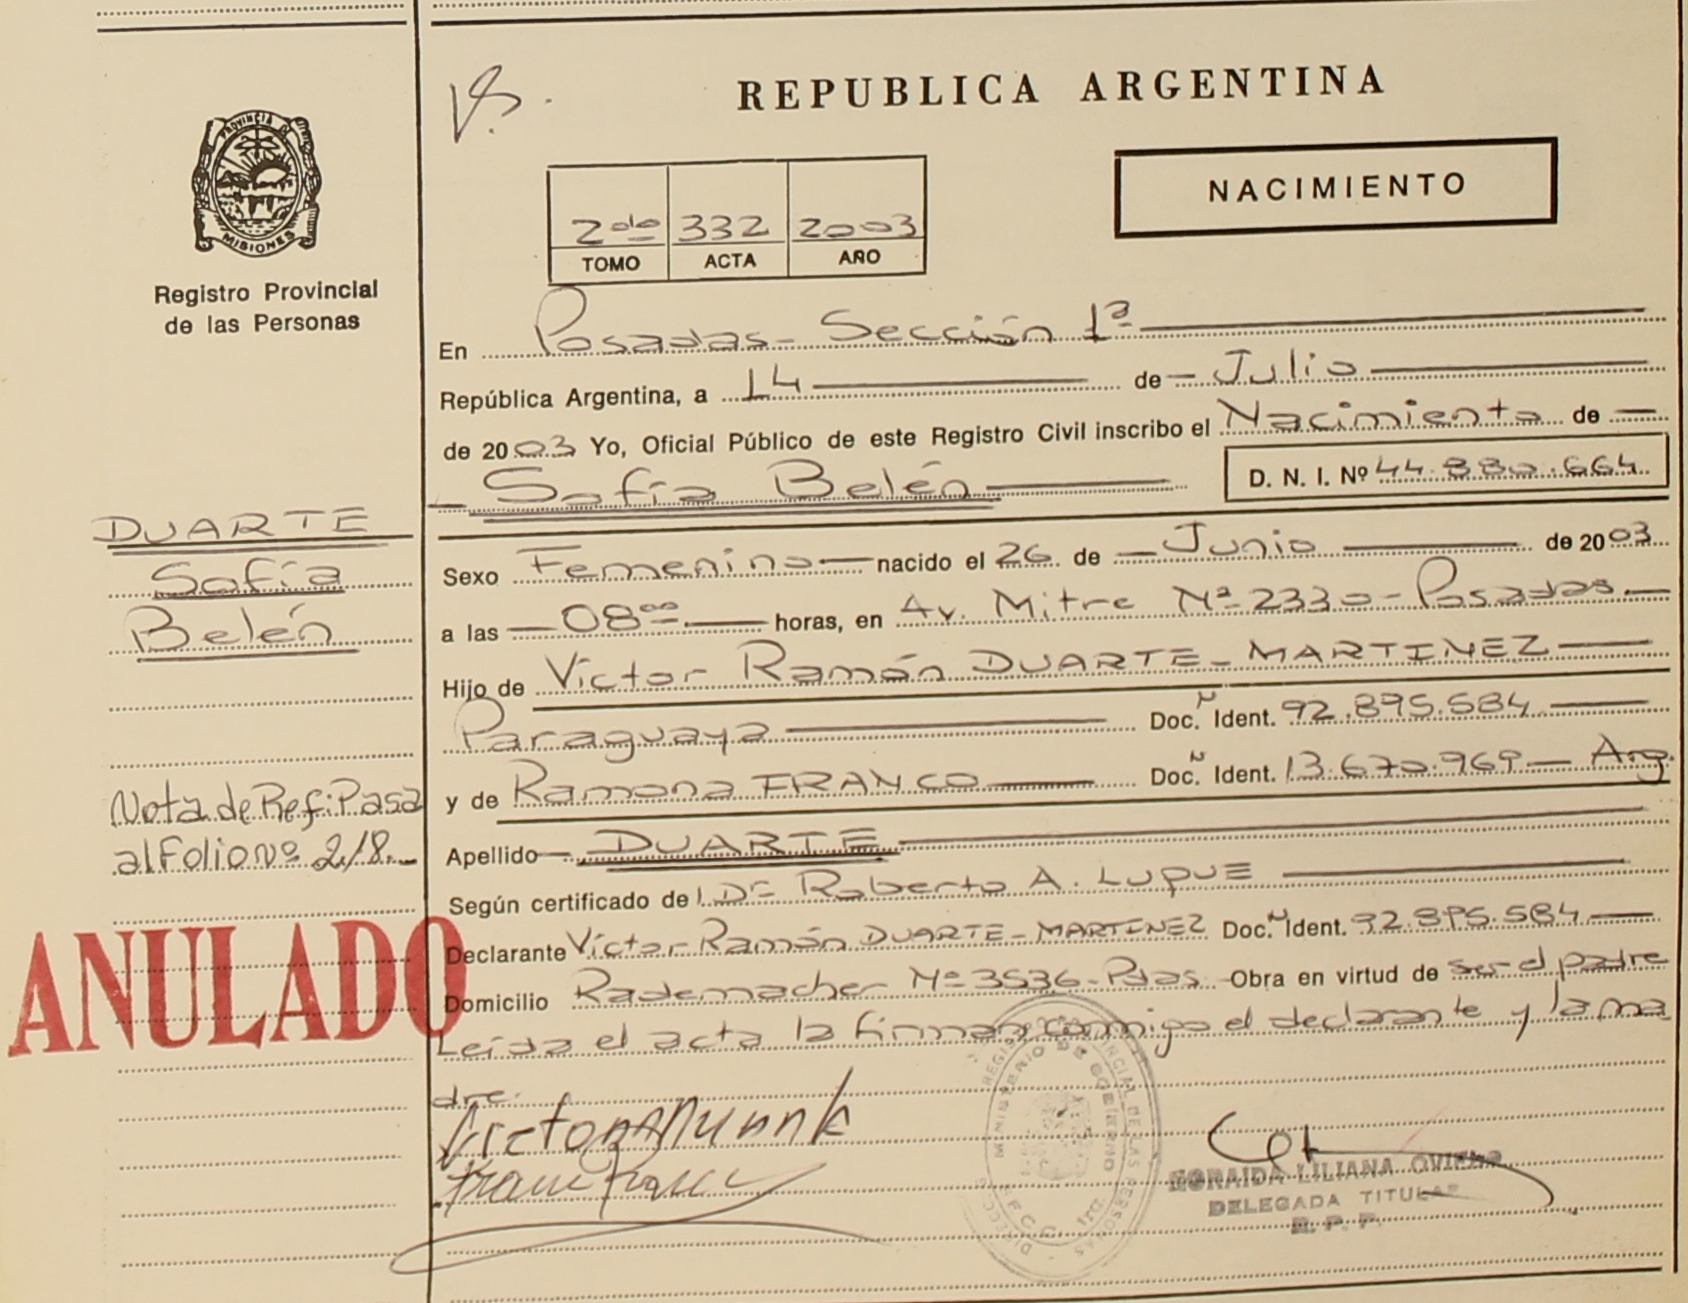 REPUBLICA ARGENTINA
PROVINCIA DE
MISIONES
Registro Provincial
de las Personas
NACIMIENTO
2do 332 2003
TOMO ACTA AÑO
En Posadas - Sección 1ª
República Argentina, a 14 de Julio
de 2003 Yo, Oficial Público de este Registro Civil inscribo el Nacimiento de
Sofía Belén D. N. I. Nº 44.880.664
DUARTE
Sofía
Belén
Sexo Femenino nacido el 26 de Junio de 2003
a las 08 00 horas, en Av. Mitre Nº 2330 - Posadas
Hijo de Víctor Ramón DUARTE - MARTINEZ
Paraguaya Doc. N Ident. 92.895.584
y de Ramona FRANCO Doc. N Ident. 13.670.969 - Arg.
Apellido DUARTE
Según certificado de Roberto A. LUPUE
Declarante Víctor Ramón DUARTE - MARTINEZ Doc. N Ident. 92.895.584
Domicilio Rademacher Nº 3536 - Pdas - Obra en virtud de ser el padre
Leída el acta la firman conmigo el declarante y la ma
dre.
Nota de Ref: Pasa
al Folio Nº 218.
ANULADO
MINISTERIO DE GOBIERNO
DELEGADA TITULAR
R. P. P.